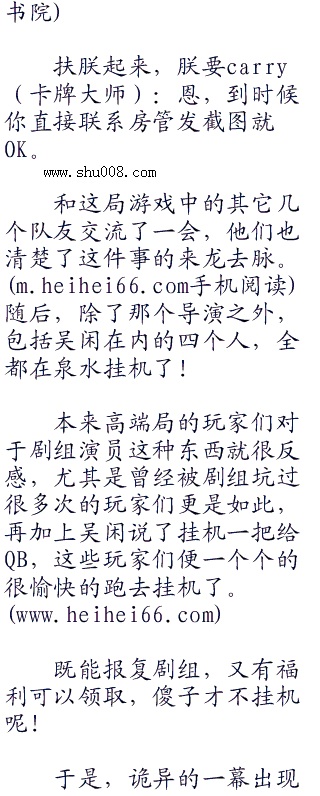 书院)
扶朕起来，朕要carry
（卡牌大师）：恩，到时候
你直接联系房管发截图就
OK。
www.shu008.com
和这局游戏中的其它几
个队友交流了一会，他们也
清楚了这件事的来龙去脉。
(m.heihei66.com手机阅读)
随后，除了那个导演之外，
包括吴闲在内的四个人，全
都在泉水挂机了！
本来高端局的玩家们对
于剧组演员这种东西就很反
感，尤其是曾经被剧组坑过
很多次的玩家们更是如此，
再加上吴闲说了挂机一把给
QB，这些玩家们便一个个的
很愉快的跑去挂机了。
(www.heihei66.com)
既能报复剧组，又有福
利可以领取，傻子才不挂机
呢！
于是，诡异的一幕出现